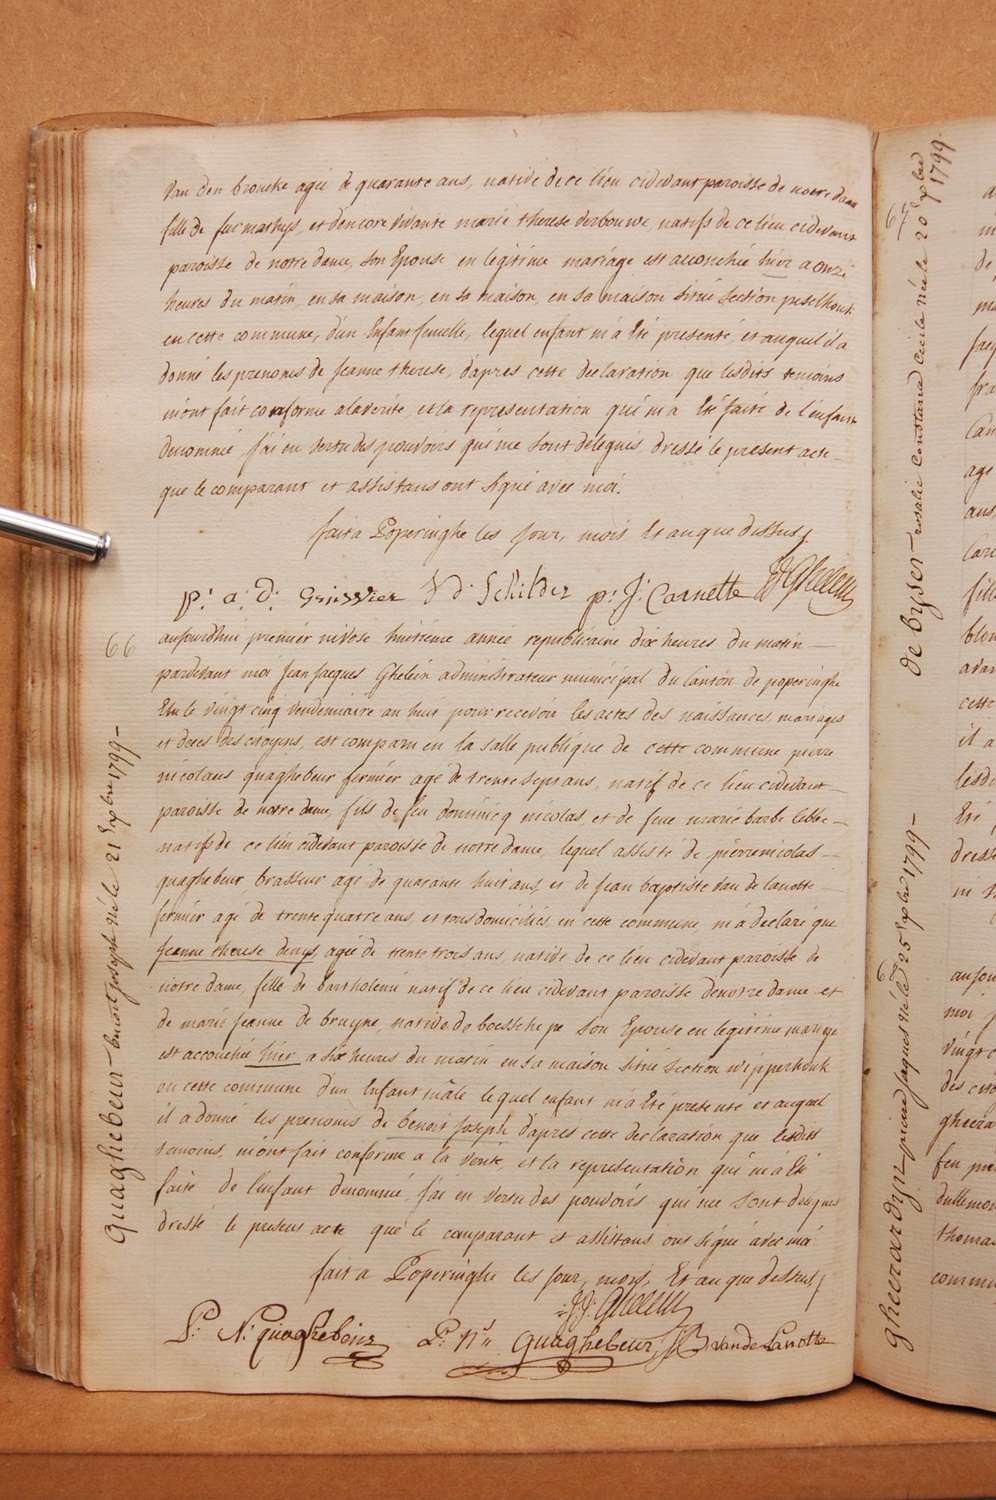 Van den broucke agée de quarante ans, native de ce lieu cidevant paroisse de notre dame
fille de feu mathys, et d'encore vivante marie therese verbouwe, natifs de ce lieu cidevant
paroisse de notre dame, son Epouse en legitime mariage est accouchée hier a onze
heures du matin, en sa maison, en sa maison, en sa maison située section peselhouk
en cette commune, d'un Enfant femelle, lequel enfant m'a Eté presenté, et auquel il a
donné les prenoms de jeanne therese, d'apres cette declaration que lesdits temoins
m'ont fait conforme a la verité, et la representation qui m'a Eté faite de l'enfant
denommé j'ai en vertu des pouvoirs qui me sont delegués dressé le present acte
que le comparant et assistans ont signé avec moi.
fait a Poperinghe les jour, mois Et an que dessus
p: a: d: V d Schilder p: J: Carnette JJ Ghelein
66
aujourdhui premier nivose huitieme année republicaine dix heures du matin
pardevant moi Jean Jacques Ghelein administrateur municipal du Canton de poperinghe
Elu le vingt cinq vendemiaire an huit pour recevoir les actes des naissances, mariages
et deces des citoyens, est comparu en la salle publique de cette commune pierre
nicolaus quaghebeur fermier agé de trente sept ans, natif de ce lieu cidevant
paroisse de notre dame, fils de feu dominicq nicolas, et de feue marie barbe lebbe
natifs de ce lieu cidevant paroisse de notre dame, lequel assisté de pierre nicolas
quaghebeur, brasseur agé de quarante huit ans, et de jean baptiste van de lanotte
fermier agé de trente quatre ans, et tous domiciliés, en cette commune m'a declaré que
jeanne therese denys, agée de trente trois ans, native de ce lieu cidevant paroisse de
notre dame, fille de bartholemi natif de ce lieu cidevant paroisse de notre dame et
de marie jeanne de bruyne, native de boesschepe son Epouse en legitime mariage
est accouchée hier a six heures du matin en sa maison située section wipperhouk
en cette commune d'un Enfant mâle lequel enfant m'a Eté presenté et auquel
il a donné les prenoms de benoit joseph d'apres cette declaration que lesdits
temoins, m'ont fait conforme a la verité, et la representation qui m'a Eté
faite de l'enfant denommé, j'ai en vertu des pouvoirs qui me sont delegués
dressé le present acte que le comparant et assistans ont signé avec moi
fait a Poperinghe les jour, mois, Et an que dessus
JJ: Ghelein
P: N: quaghebeur P: Ns Quaghebeur, JB vande Lanotte
quaghebeur benoit joseph née le 21 xbre 1799
67
de bryser rosalie constance née le 20 xbre
1799
gheerardyn pierre jaques né le 25 xbre 1799